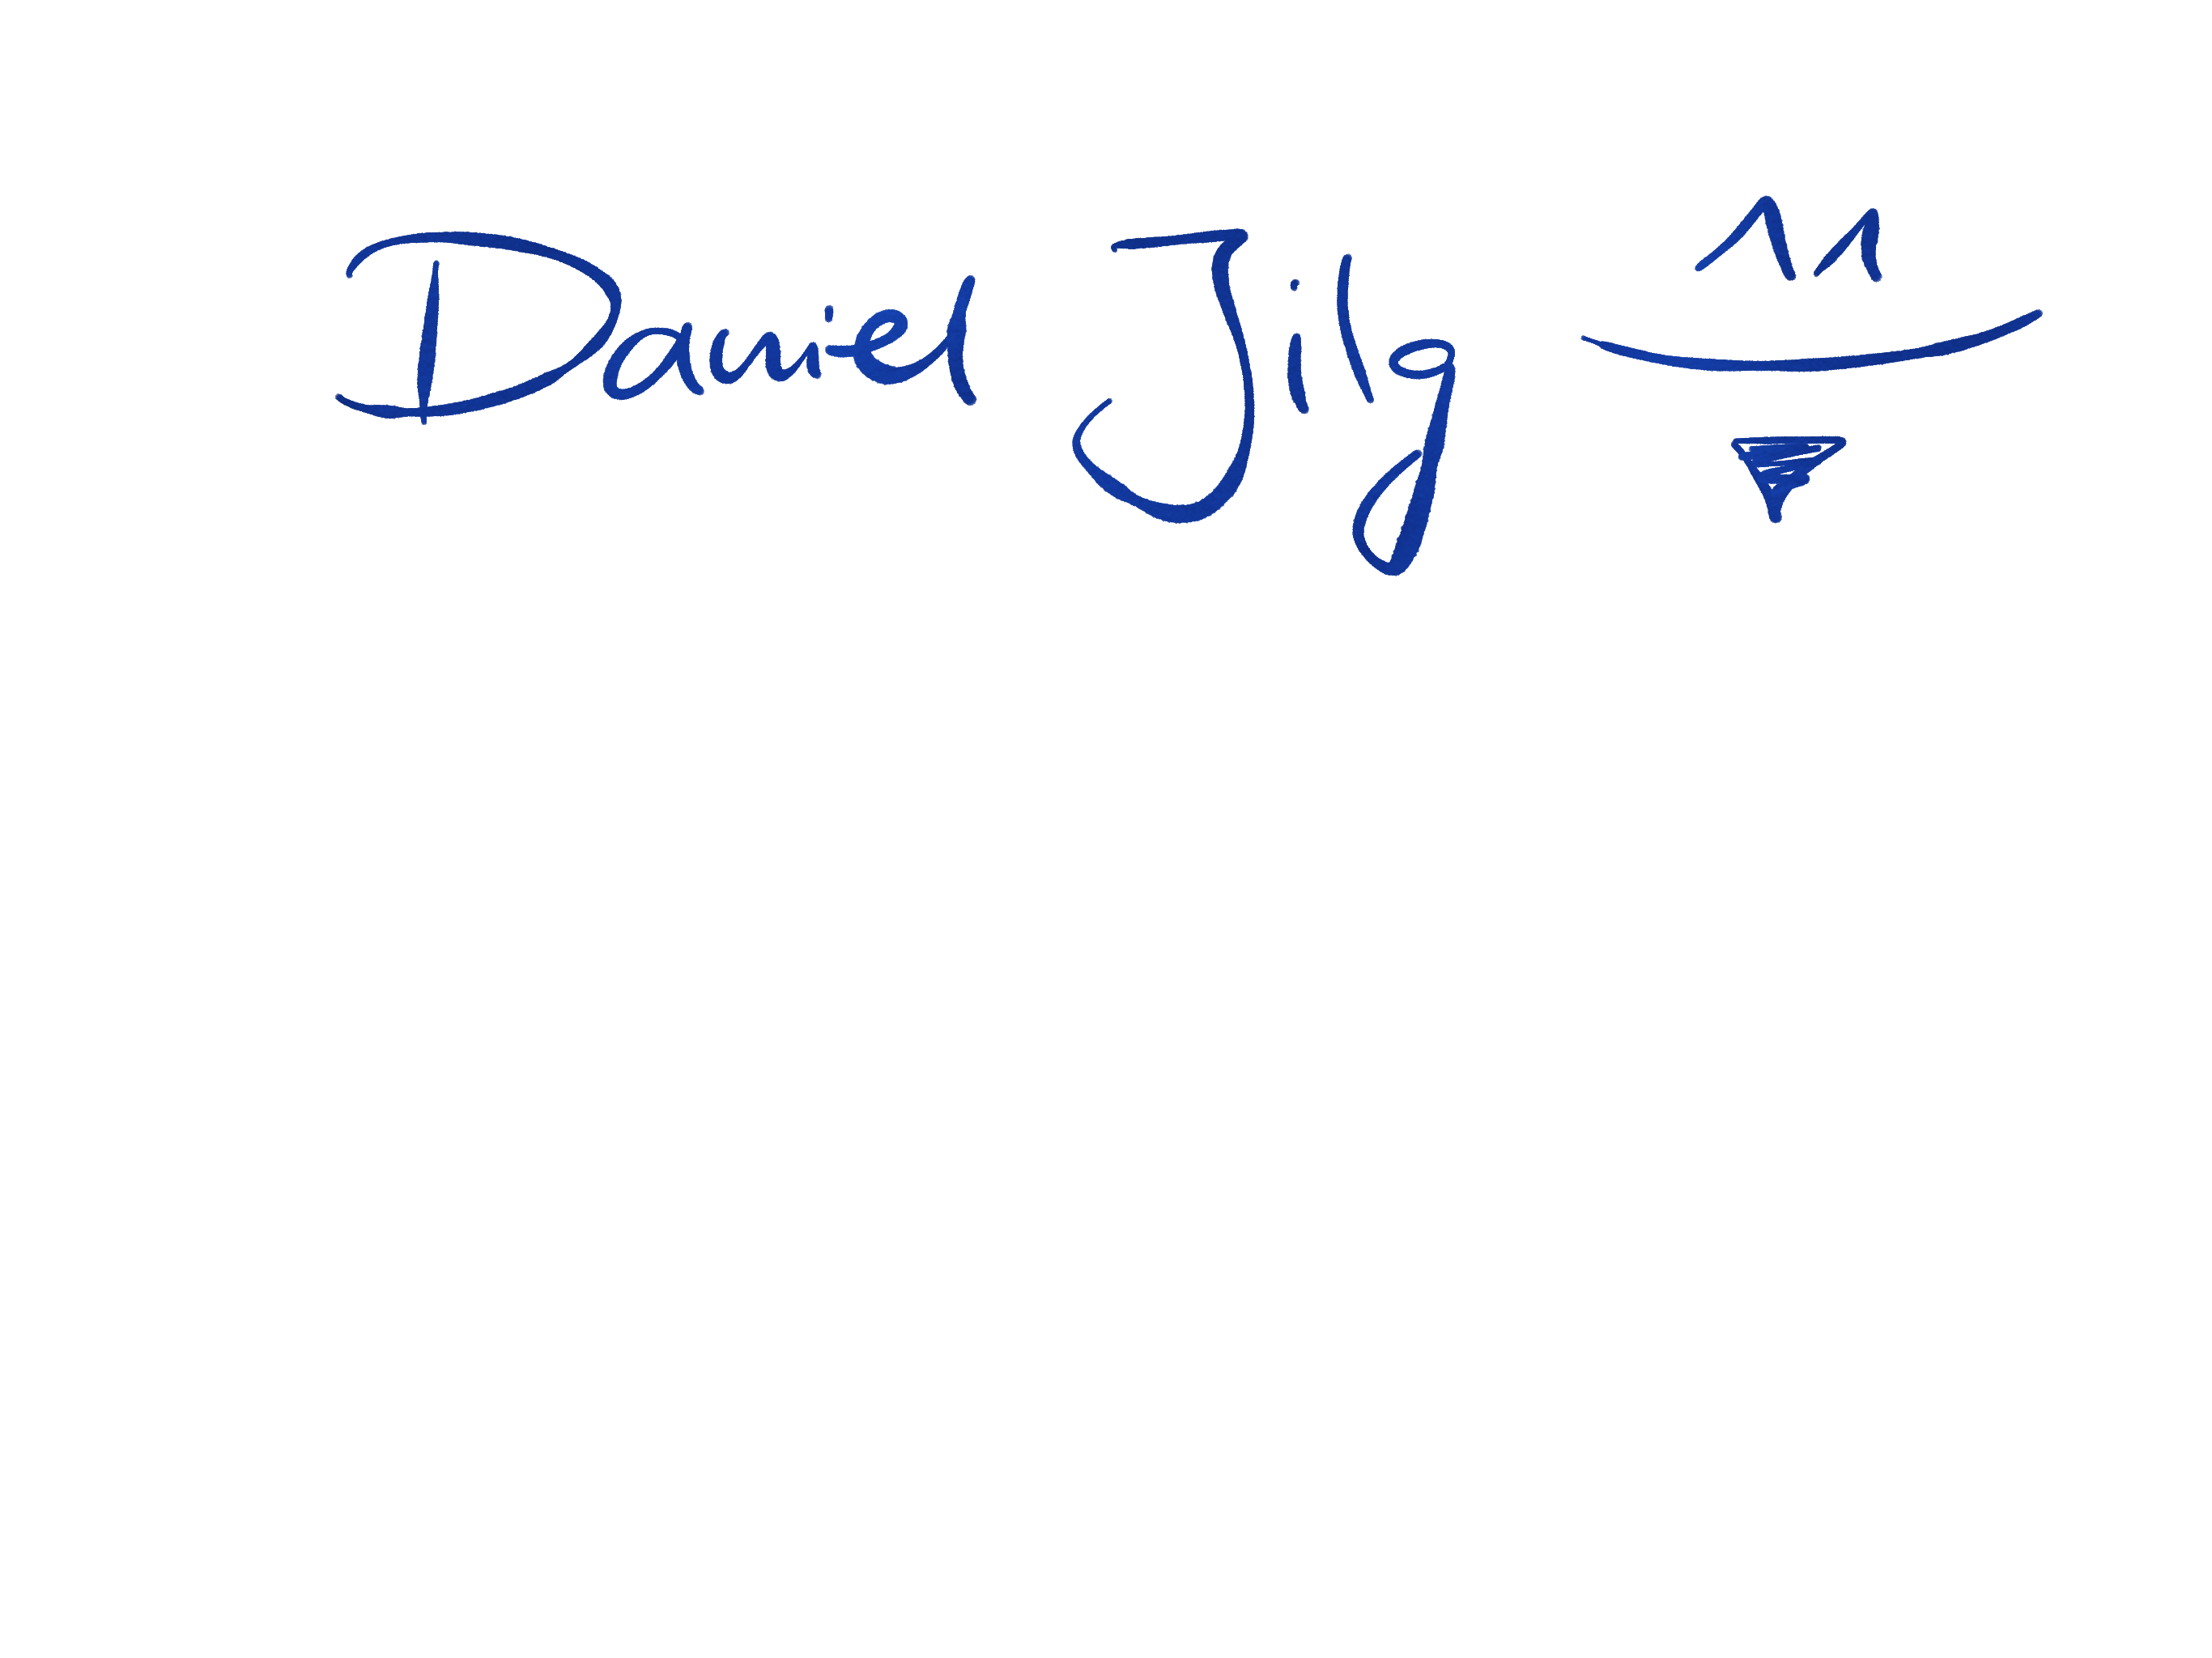 Daniel Jilg